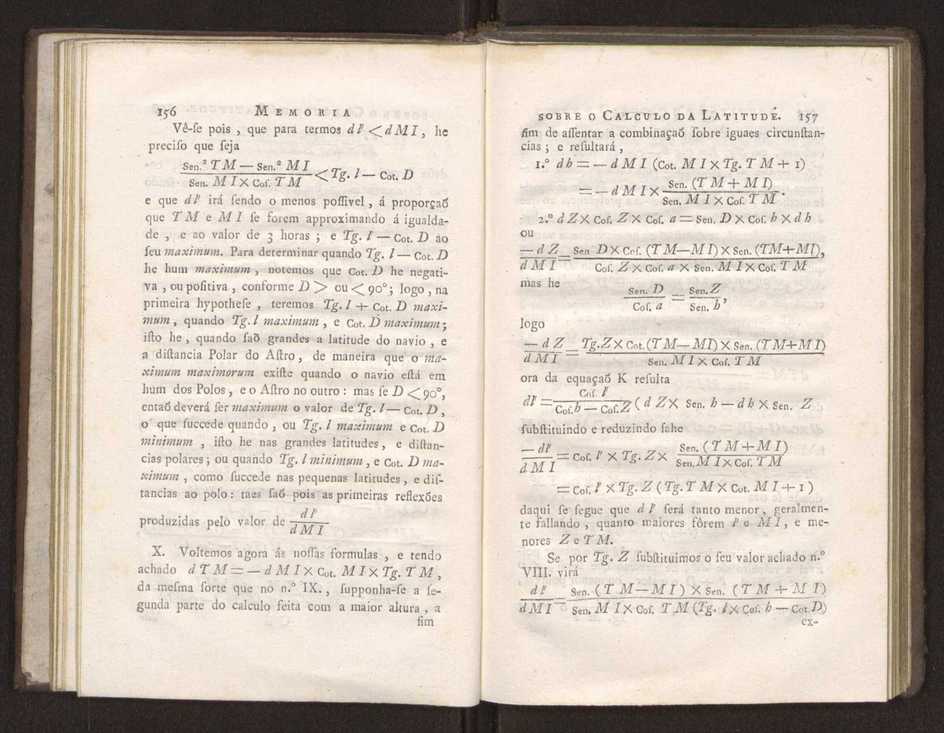 156 MEMORIA
Vê-ſe pois , que para termos dl' < dMI, he
preciſo que ſeja
Sen.² TM — Sen.² MI / Sen. MI × Coſ. TM < Tg. l — Cot. D
e que dl' irá ſendo o menos poſſivel , á proporçaõ
que TM e MI ſe forem approximando á igualda-
de , e ao valor de 3 horas ; e Tg. l — Cot. D ao
ſeu maximum. Para determinar quando Tg. l — Cot. D
he hum maximum , notemos que Cot. D he negati-
va , ou poſitiva , conforme D > ou < 90°; logo , na
primeira hypotheſe , teremos Tg. l + Cot. D maxi-
mum, quando Tg. l maximum , e Cot. D maximum;
iſto he , quando ſaõ grandes a latitude do navio , e
a diſtancia Polar do Aſtro , de maneira que o ma-
ximum maximorum exiſte quando o navio eſtá em
hum dos Polos , e o Aſtro no outro : mas ſe D < 90°,
entaõ deverá ſer maximum o valor de Tg. l — Cot. D ,
o que ſuccede quando , ou Tg. l maximum e Cot. D
minimum , iſto he nas grandes latitudes , e diſtan-
cias polares ; ou quando Tg. l minimum , e Cot. D ma-
ximum , como ſuccede nas pequenas latitudes , e diſ-
tancias ao polo : taes ſaõ pois as primeiras reflexões
produzidas pelo valor de dl' / dMI
X. Voltemos agora ás noſſas formulas , e tendo
achado dTM = — dMI × Cot. MI × Tg. TM ,
da meſma ſorte que no n.° IX. , ſupponha-ſe a ſe-
gunda parte do calculo feita com a maior altura , a
fim
SOBRE O CALCULO DA LATITUDE. 157
fim de aſſentar a combinaçaõ ſobre iguaes circunſtan-
cias ; e reſultará ,
1.° dh = — dMI (Cot. MI × Tg. TM + 1)
= — dMI × Sen. (TM + MI) / Sen. MI × Coſ. TM .
2.° dZ × Coſ. Z × Coſ. a = Sen. D × Coſ. h × dh
ou
— dZ / dMI = Sen. D × Coſ. (TM—MI) × Sen. (TM+MI) / Coſ. Z × Coſ. a × Sen. MI × Coſ. TM ,
mas he
Sen. D / Coſ. a = Sen. Z / Sen. h ,
logo
— dZ / dMI = Tg. Z × Cot. (TM—MI) × Sen. (TM+MI) / Sen. MI × Coſ. TM
ora da equaçaõ K reſulta
dl' = Coſ. l' / Coſ. h — Coſ. Z ( dZ × Sen. h — dh × Sen. Z
ſubſtituindo e reduzindo ſahe
— dl' / dMI = Coſ. l' × Tg. Z × Sen. (TM+MI) / Sen. MI × Coſ. TM
= Coſ. l' × Tg. Z (Tg. TM × Cot. MI + 1 )
daqui ſe ſegue que dl' ſerá tanto menor , geralmen-
te fallando , quanto maiores fôrem l' e MI , e me-
nores Z e TM.
Se por Tg. Z ſubſtituimos o ſeu valor achado n.°
VIII. virá
dl' / dMI = Sen. (TM—MI) × Sen. (TM + MI) / Sen. MI × Coſ. TM (Tg. l × Coſ. h — Cot. D)
cx-